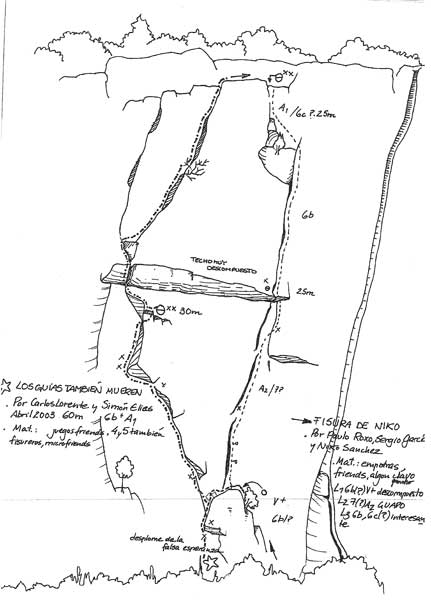 xx
A1/6c?.25m
6b
TECHO MUY
DESCOMPUESTO
x
25m
xx 30m
A2/??
LOS GUÍAS TAMBIÉN MUEREN
. Por Carlos Lorente y Simón Elias
Abril 2003 60m 6b+ A1
. Mat.: juegos friends, 4,5 también
fisureros, microfriends
FISURA DE NIKO
. Por Paulo Roxo, Sergio García
y Niko Sanchez
. Mat.: empotras,
friends, algun clavo
L1 6b(?) V+ descompuesto
L2 7(?) A2 GUAPO
L3 6b, 6c(?) interesan-
te
V+
6b/?
desplome de la
falsa esperanza